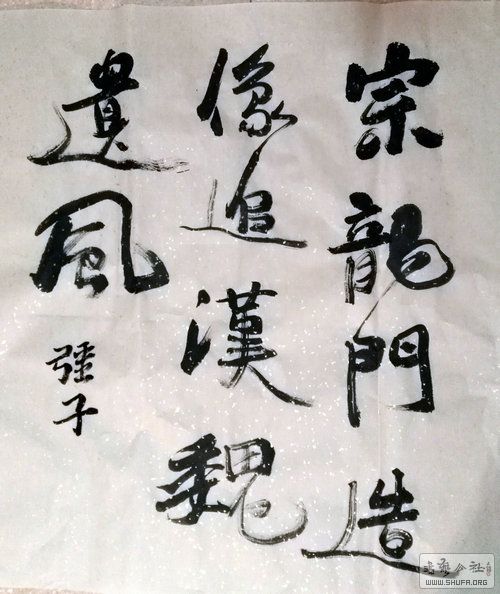 宗龍門造
像追漢魏
遺風
强子
书法公社
WWW.SHUFA.ORG